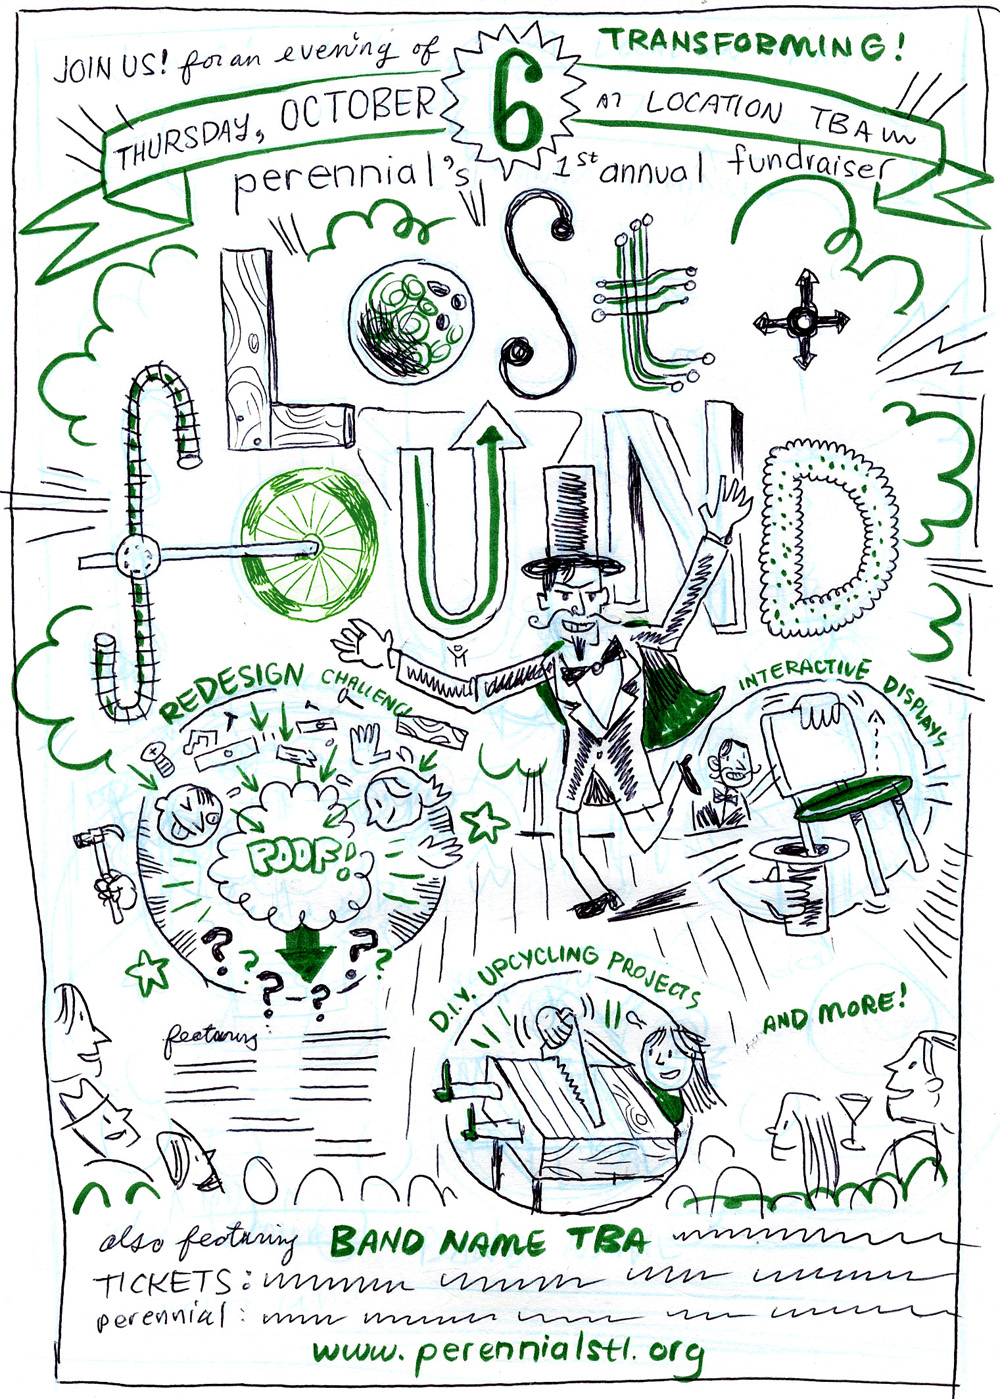 JOIN US! for an evening of TRANSFORMING!
THURSDAY, OCTOBER 6 AT LOCATION TBA
perennial's 1st annual fundraiser
LOST +
FOUND
REDESIGN CHALLENGE
INTERACTIVE DISPLAYS
POOF!
? ? ? ? ? ?
D.I.Y. UPCYCLING PROJECTS
AND MORE!
featuring
also featuring BAND NAME TBA
TICKETS:
perennial:
www.perennialstl.org